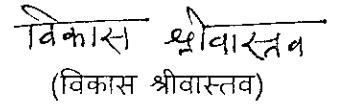 विकास श्रीवास्तव
(विकास श्रीवास्तव)